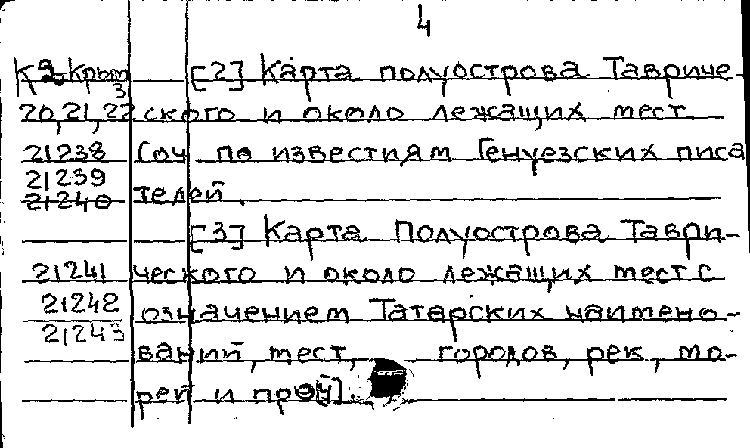 4
К 2-Крым 3
[2] Карта полуострова Тавриче-
20,21,22 ского и около лежащих мест
21238 Соч по известиям Генуезских писа
21239
21240 телей.
[3] Карта Полуострова Таври-
21241 ческого и около лежащих мест с
21242 означением Татарских наимено-
21243
ваний, мест, городов, рек, мо-
рей и проч].